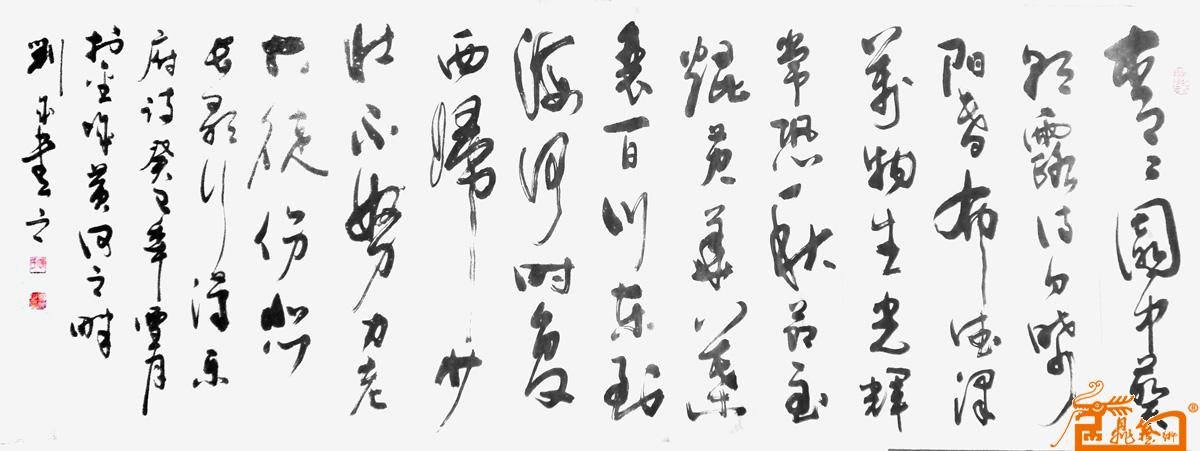 青々園中葵
朝露待日晞
陽春布德澤
萬物生光輝
常恐秋節至
焜黃華葉
衰百川東到
海何時復
西歸少
壯不努力老
大徒傷悲
長歌行漢樂
府詩癸巳年雪月
於金城黃河之畔
劉書之